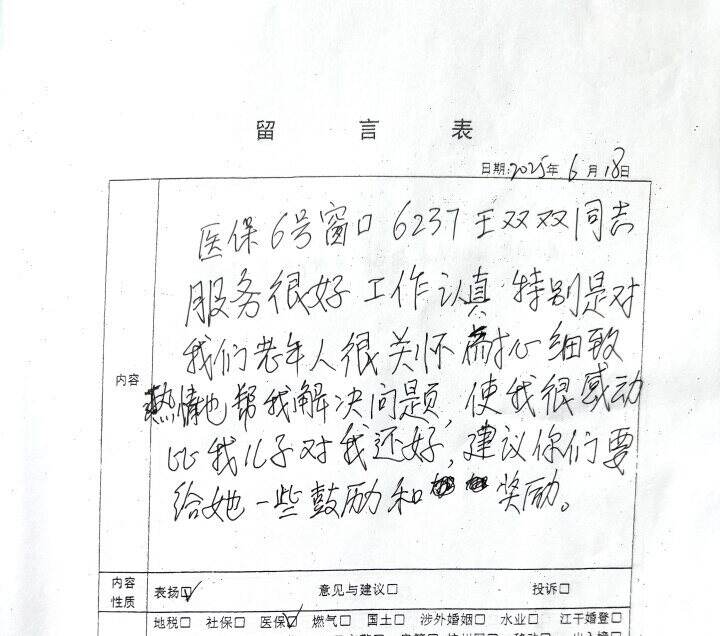 留言表
日期:2025年6月18日
医保6号窗口6237王双双同志
服务很好工作认真特别是对
我们老年人很关怀耐心细致
内容
热情地帮我解决问题,使我很感动
比我儿子对我还好,建议你们要
给她一些鼓励和奖励。
内容性质
表扬☑ 意见与建议☐ 投诉☐
地税☐ 社保☐ 医保☑ 燃气☐ 国土☐ 涉外婚姻☐ 水业☐ 江干婚登☐